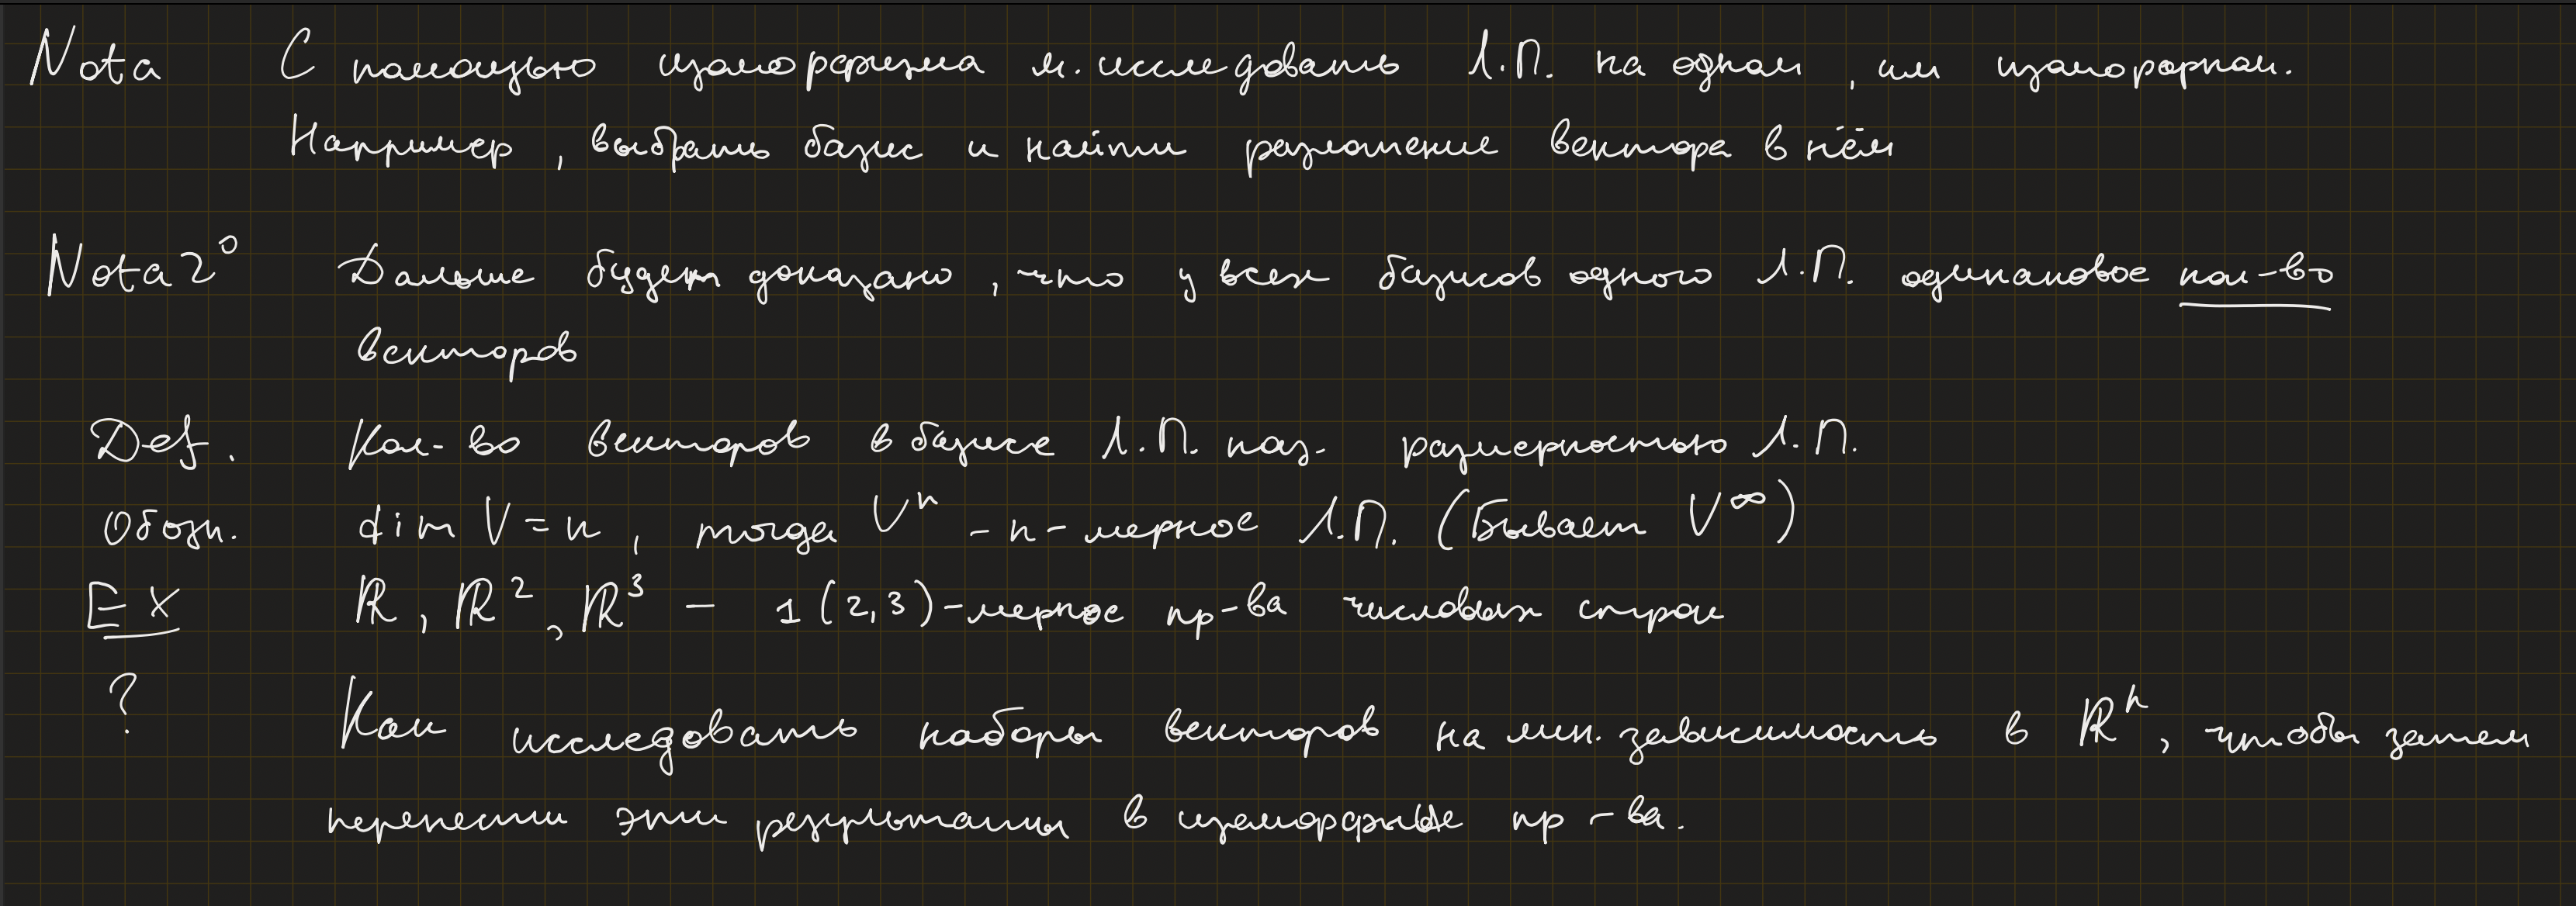 Nota С помощью изоморфизма м. исследовать Л.П. на одном, им изоморфном.
Например, выбрать базис и найти разложение вектора в нём
Nota 2° Дальше будет доказано, что у всех базисов одного Л.П. одинаковое кол-во
векторов
Def. Кол-во векторов в базисе Л.П. наз. размерностью Л.П.
Обозн. dim V = n, тогда Vⁿ - n-мерное Л.П. (Бывает V^∞)
Ex ℝ, ℝ², ℝ³ - 1 (2,3)-мерное пр-ва числовых строк
? Как исследовать наборы векторов на лин. зависимость в ℝⁿ, чтобы затем
перенести эти результаты в изоморфные пр-ва.